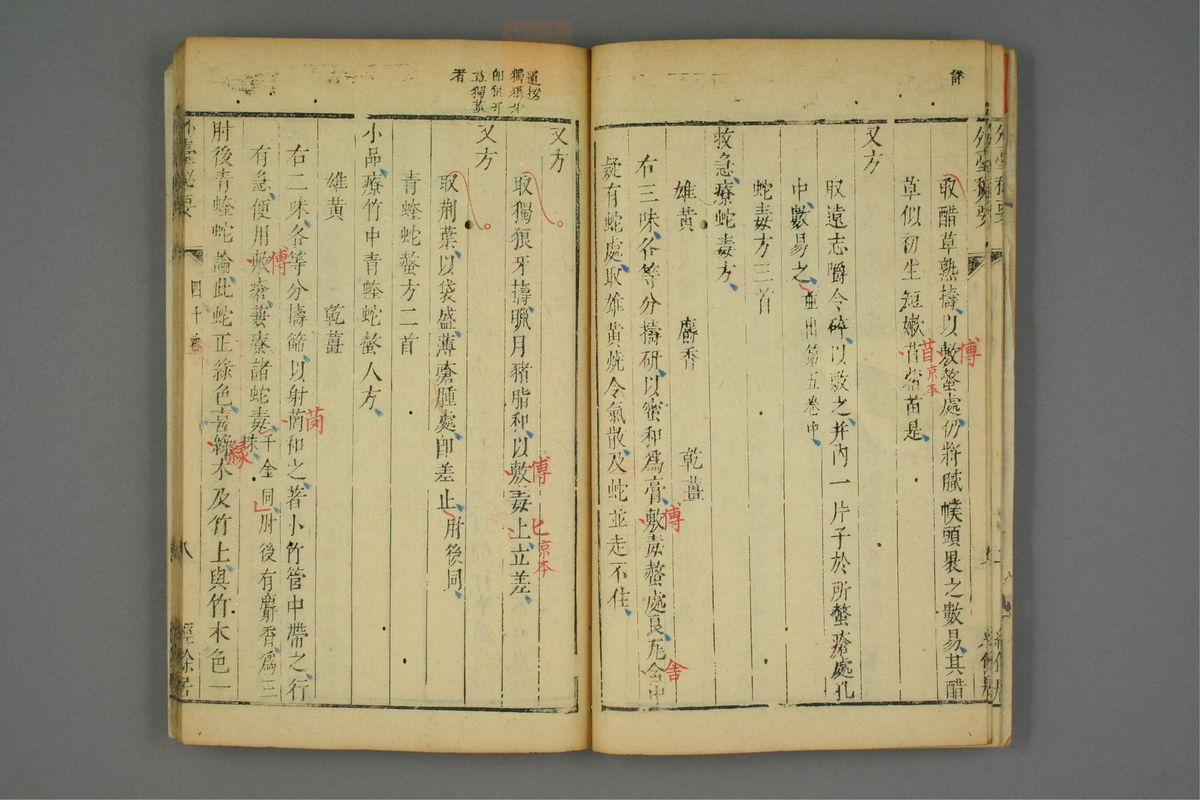 取醋草熟擣以敷螫處仍將膩幞頭裹之數易其醋
草似初生短嫩苜蓿苗是
又方
取遠志嚼令碎以敷之并內一片子於所螫瘡處孔
中數易之重出第五卷中
蛇毒方三首
救急療蛇毒方
雄黃 麝香 乾薑
右三味各等分擣研以蜜和為膏敷毒螫處良瓦舍中
疑有蛇處取雄黃燒令氣散及蛇並走不住
傅
苜京本
傅
舍
又方
取獨狼牙擣臘月豬脂和以敷毒上立差
又方
取荊葉以袋盛薄瘡腫處即差止肘後同
青蝰蛇螫方二首
小品療竹中青蝰蛇螫人方
雄黃 乾薑
右二味各等分擣篩以射菵和之著小竹管中帶之行
有急便用敷瘡兼療諸蛇毒千金同肘後有麝香為三味
肘後青蝰蛇論此蛇正綠色喜緣木及竹上與竹木色一
傅
匕京本
茵
傅
緣
外臺秘要
四十卷
八
經餘居